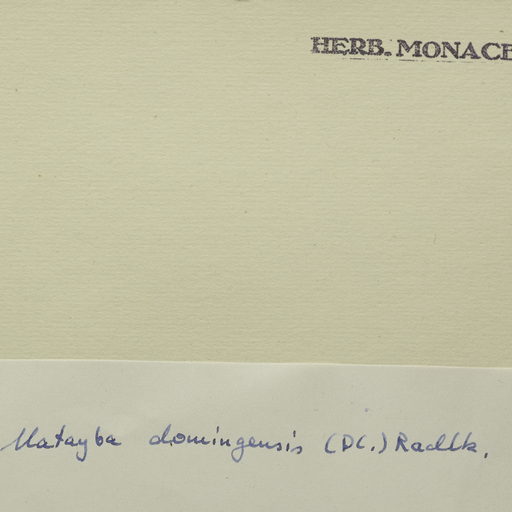 HERB. MONACE
Matayba domingensis (DC.) Radlk.